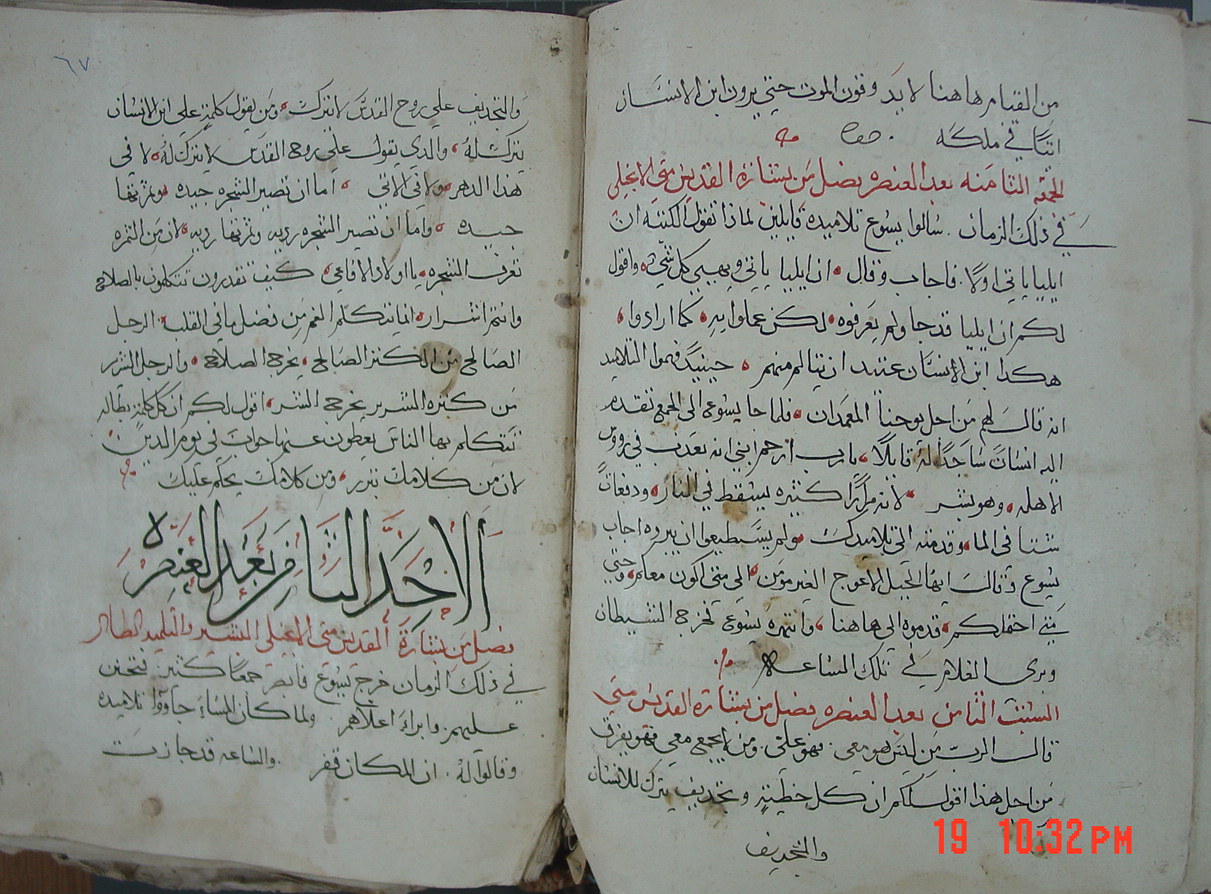 من القيام هاهنا لا يدوقون الموت حتى يرون ابن الانسان
اتيًا في ملكه
الجمعه الثامنه بعد العنصره فصل من بشارة القديس متى الانجيلي
في ذلك الزمان. سالوا يسوع تلاميده قايلين لماذا تقول الكتبه ان
ايليا ياتي اولًا. فاجاب وقال ان ايليا ياتي ويهيي كل شي واقول
لكم ان ايليا قد جا ولم يعرفوه لكن عملوا به كما ارادوا
هكدا ابن الانسان عتيد ان يتالم منهم حينيد فهموا التلاميد
انه قال لهم من اجل يوحنا المعمدان فلما جا يسوع الى الجمع تقدم
اليه انسان ساجدًا له قايلًا يا رب ارحم ابني انه يعدب في رووس
الاهله وهو بشر لانه مرارًا كثيره يسقط في النار ودفعات
شتا في الما وقدمته الى تلاميدك ولم يستطيعوا ان يبروه اجاب
يسوع وقال ايها الجيل الاعوج الغير مومن الى متى اكون معكم وحتى
متى احتملكم قدموه الى هاهنا وانتهره يسوع فخرج الشيطان
وبرى الغلام في تلك الساعه
السبت الثامن بعد العنصره فصل من بشارة القديس متى
قال الرب من ليس هو معي فهو علي ومن لا يجمع معي فهو يفرق
من اجل هذا اقول لكم ان كل خطية وتجديف يترك للانسان
والتجديف
٦٧
والتجديف على روح القدس لا يترك ومن يقول كلمة على ابن الانسان
يترك له والدي يقول على روح القدس لا يترك له لا في
هذا الدهر ولا في الاتي اما ان تصير الشجره جيده وثمرتها
جيده واما ان تصير الشجره رديه وثمرتها رديه لان من الثمره
تعرف الشجره يا اولاد الافاعي كيف تقدرون تتكلمون بالصلاح
وانتم اشرار انما يتكلم الفم من فضل ما في القلب الرجل
الصالح من الكنز الصالح يخرج الصلاح والرجل الشرير
من كنزه الشرير يخرج الشر اقول لكم ان كل كلمة بطاله
تتكلم بها الناس يعطون عنها جواب في يوم الدين
لان من كلامك تبرر ومن كلامك يحكم عليك
الاحد الثامن بعد العنصره
فصل من بشارة القديس متى الانجيلي البشير والتلميد الطاهر
في ذلك الزمان خرج يسوع فابصر جمعًا كثير فتحنن
عليهم وابراء اعلاهم ولما كان المساء جاووا تلاميده
وقالوا له. ان المكان قفر والساعه قد جازت
19 10:32PM